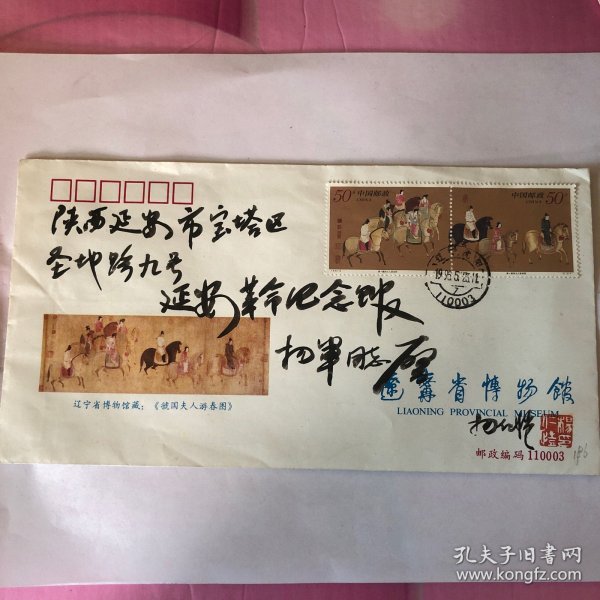 50分
中国邮政
CHINA
50分
中国邮政
CHINA
陕西延安市宝塔区
圣地路九号
延安革命纪念馆
杨军同志 启
1995.5.25.11
110003
辽宁省博物馆藏：《虢国夫人游春图》
辽宁省博物馆
LIAONING PROVINCIAL MUSEUM
杨仁恺
邮政编码 110003
186
孔夫子旧书网
www.kongfz.com